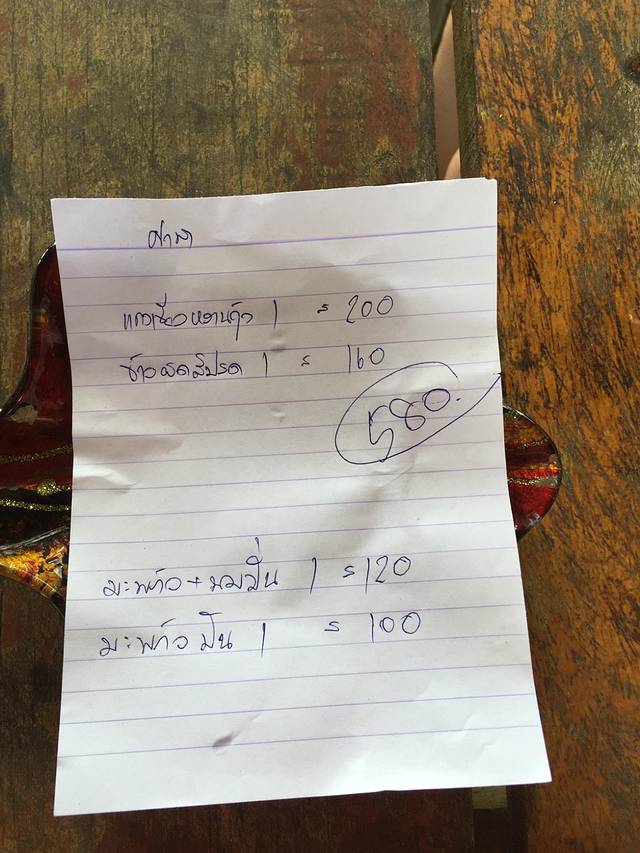 ศาลา
แกงเขียวหวานไก่ 1 = 200
ข้าวผัดสัปรด 1 = 160
580.
มะพร้าว + นมปั่น 1 = 120
มะพร้าวปั่น 1 = 100